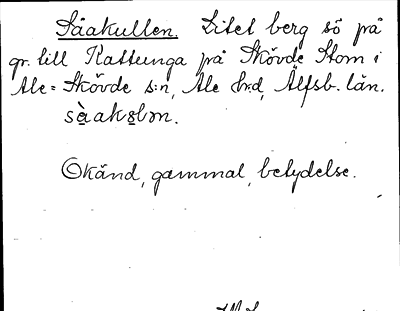 Såakullen. Litet berg sö på
gr. till Kattunga på Skövde Stom i
Ale-Skövde s:n, Ale hrd, Älfsb. län.
såakslən.
Okänd, gammal, betydelse.